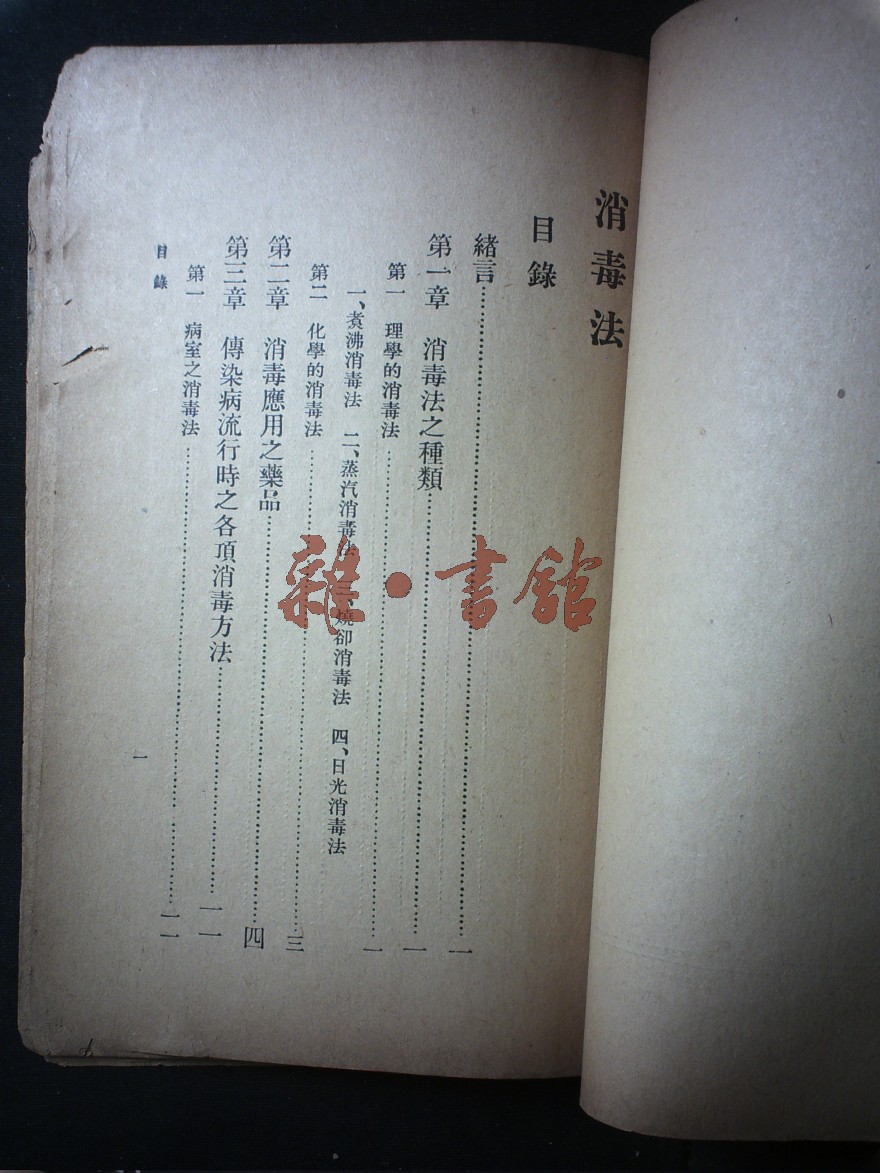 消毒法
目錄
緒言……一
第一章　消毒法之種類……一
第一　理學的消毒法……一
一、煮沸消毒法　二、蒸汽消毒法　三、燒卻消毒法　四、日光消毒法
第二　化學的消毒法……三
第二章　消毒應用之藥品……四
第三章　傳染病流行時之各項消毒方法……一一
第一　病室之消毒法……一一
目錄
一
雜·書館